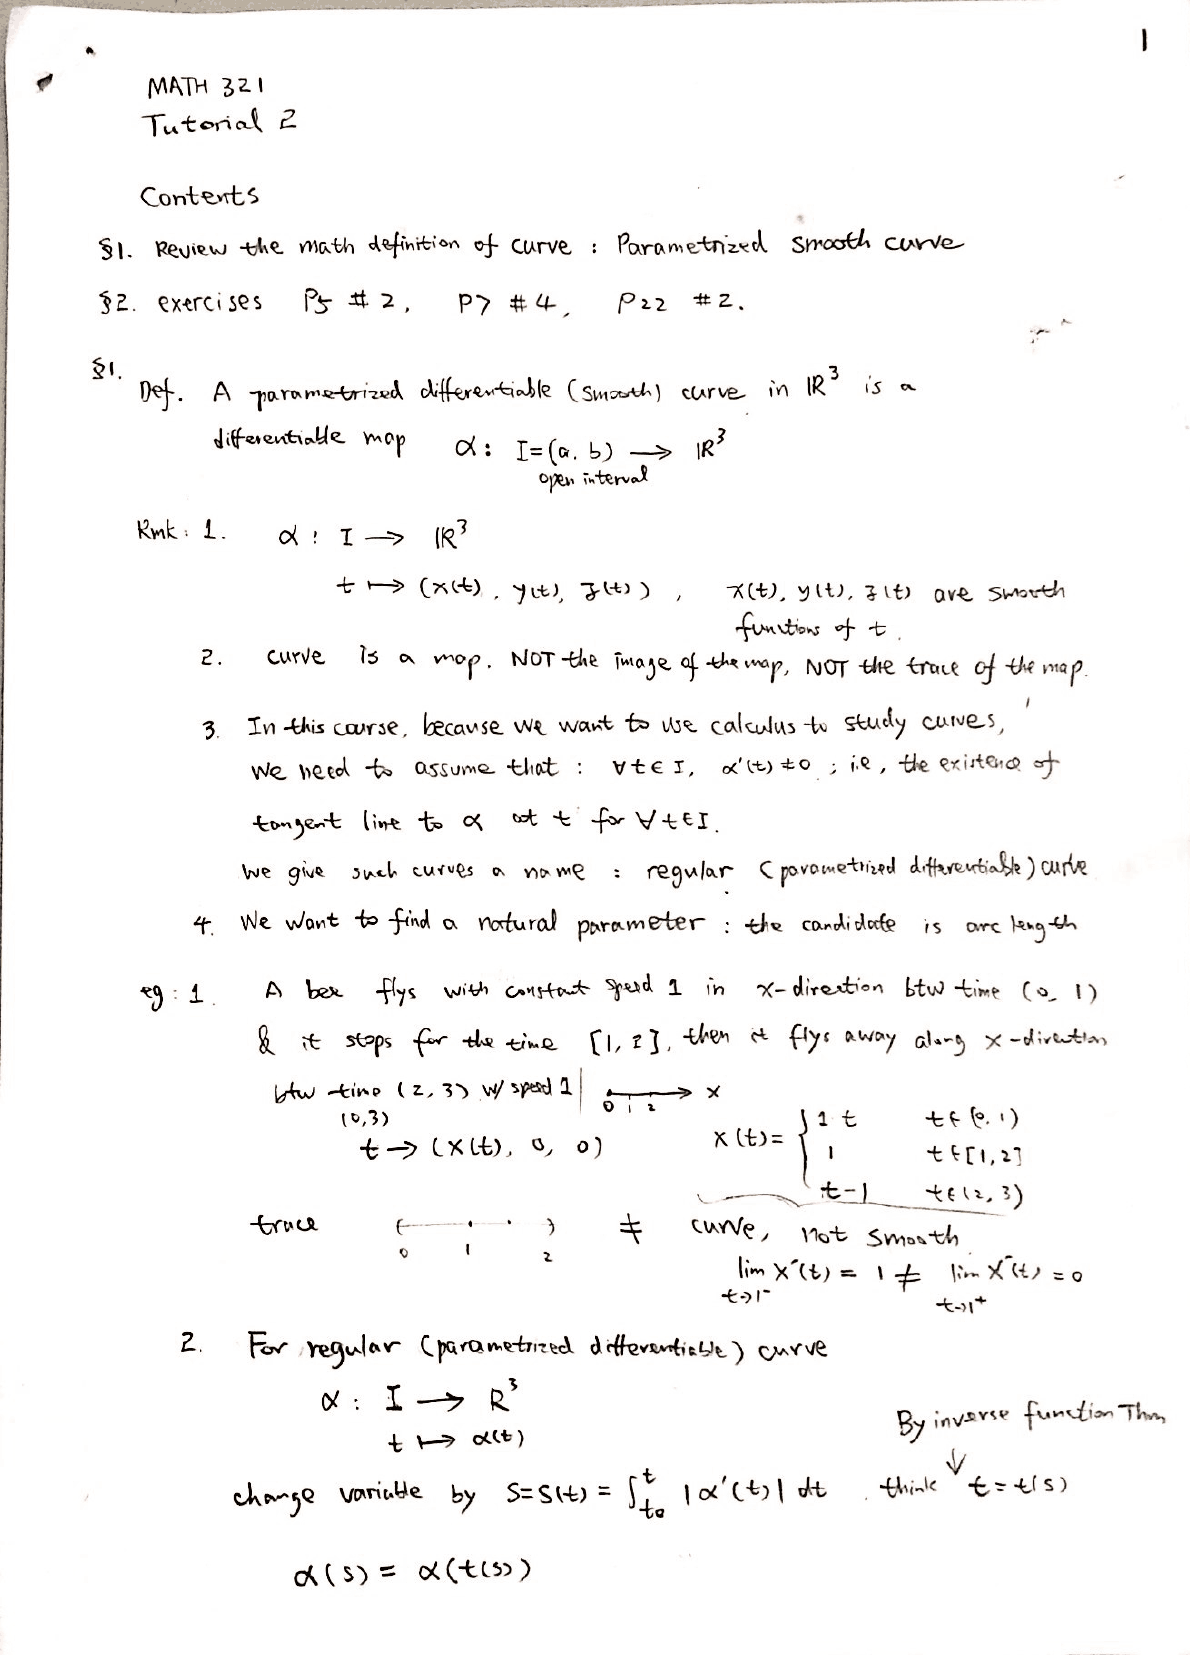 1
MATH 321
Tutorial 2
Contents
§1. Review the math definition of curve : Parametrized smooth curve
§2. exercises P5 # 2, P7 # 4, P22 # 2.
§1.
Def. A parametrized differentiable (smooth) curve in ℝ³ is a
differentiable map α: I=(a, b) → ℝ³
open interval
Rmk: 1. α : I → ℝ³
t ↦ (x(t), y(t), z(t)), x(t), y(t), z(t) are smooth
functions of t.
2. curve is a map. NOT the image of the map, NOT the trace of the map.
3. In this course, because we want to use calculus to study curves,
we need to assume that : ∀t∈I, α'(t)≠0 ; i.e, the existence of
tangent line to α at t for ∀t∈I.
We give such curves a name : regular (parametrized differentiable) curve
4. We want to find a natural parameter : the candidate is arc length
eg : 1. A bee flys with constant speed 1 in x-direction btw time (0, 1)
& it stops for the time [1, 2], then it flys away along x-direction
btw time (2, 3) w/ speed 1 | 0 1 2 → x
(0,3)
t → (x(t), 0, 0) x(t) = { 1 t t∈(0, 1)
1 t∈[1, 2]
t-1 t∈(2, 3)
trace ( 0 1 2 ) ≠ curve, not smooth
lim x'(t) = 1 ≠ lim x'(t) = 0
t→1⁻ t→1⁺
2. For regular (parametrized differentiable) curve
α : I → R³
t ↦ α(t)
By inverse function Thm
↓
change variable by S=S(t) = ∫ₜ₀ᵗ |α'(t)| dt . think t = t(s)
α(s) = α(t(s))